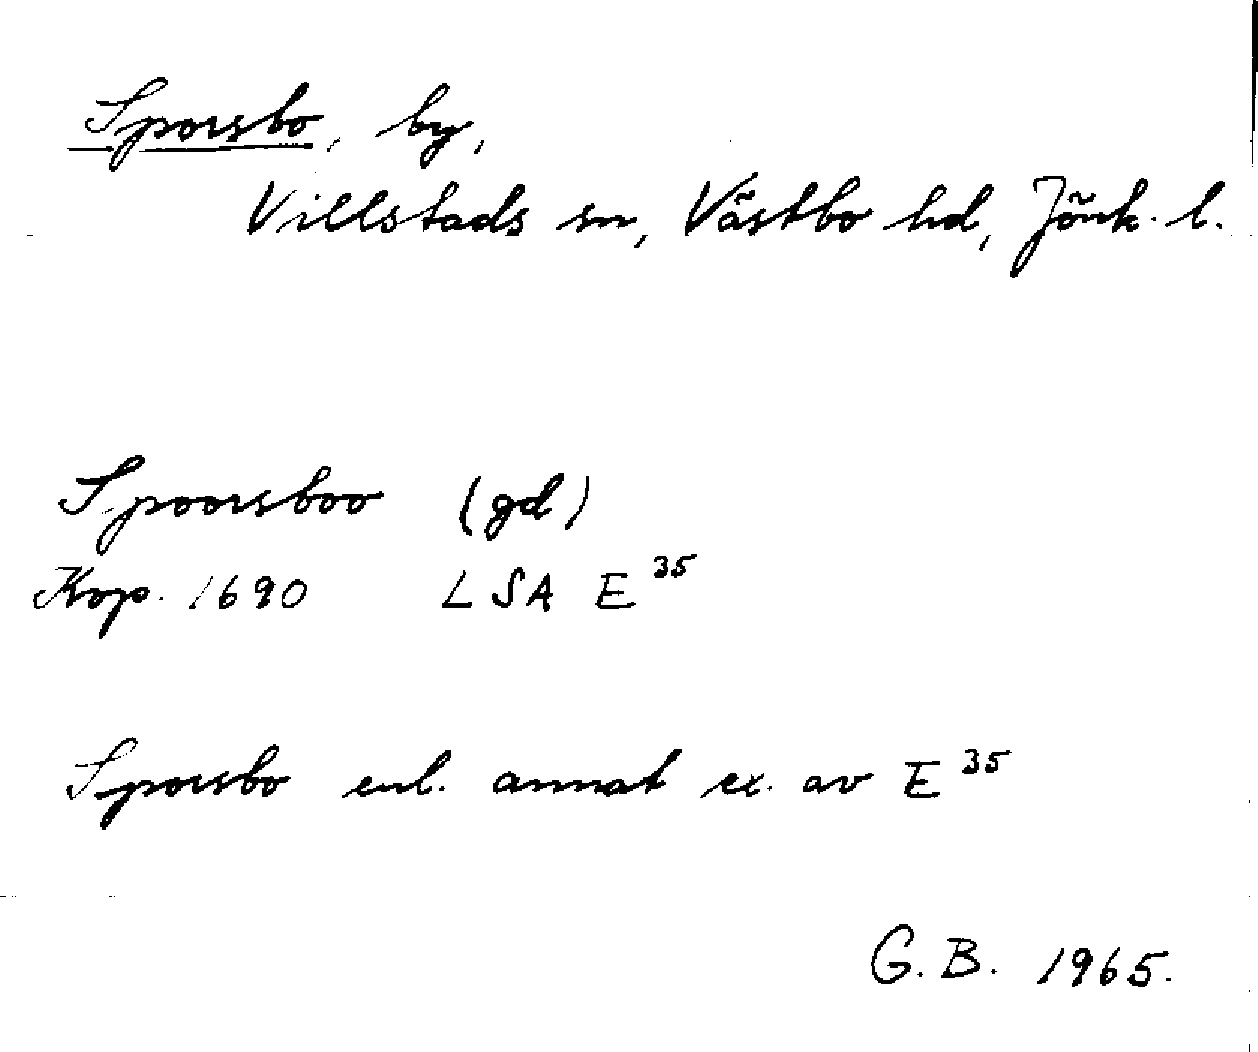 Sporsbo, by,
Villstads sn, Västbo hd, Jönk. l.
Spoorsboo (gd)
Kop. 1690 LSA E 35
Sporsbo enl. annat ex. av E 35
G. B. 1965.